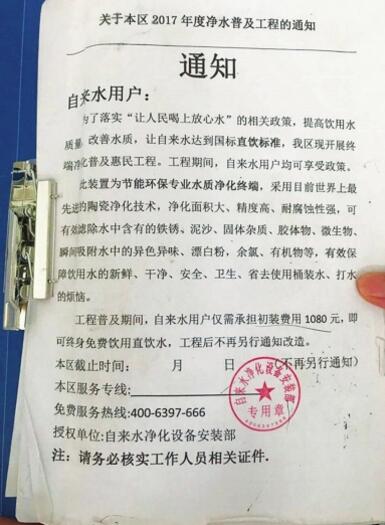 关于本区 2017 年度净水普及工程的通知
通知
自来水用户：
为了落实“让人民喝上放心水”的相关政策，提高饮用水
质量，改善水质，让自来水达到国标直饮标准，我区现开展终
端净化普及惠民工程。工程期间，自来水用户均可享受政策。
此装置为节能环保专业水质净化终端，采用目前世界上最
先进的陶瓷净化技术，净化面积大、精度高、耐腐蚀性强，可
有效滤除水中含有的铁锈、泥沙、固体杂质、胶体物、微生物、
瞬间吸附水中的异色异味、漂白粉，余氯，有机物等，有效保
障饮用水的新鲜、干净、安全、卫生、省去使用桶装水、打水
的烦恼。
工程普及期间，自来水用户仅需承担初装费用 1080 元，即
可终身免费饮用直饮水，工程后不再另行通知改造。
本区截止时间： 月 日 （不再另行通知）
本区服务专线:
免费服务热线:400-6397-666
授权单位:自来水净化设备安装部
注：请务必核实工作人员相关证件.
自来水净化设备安装部
专用章